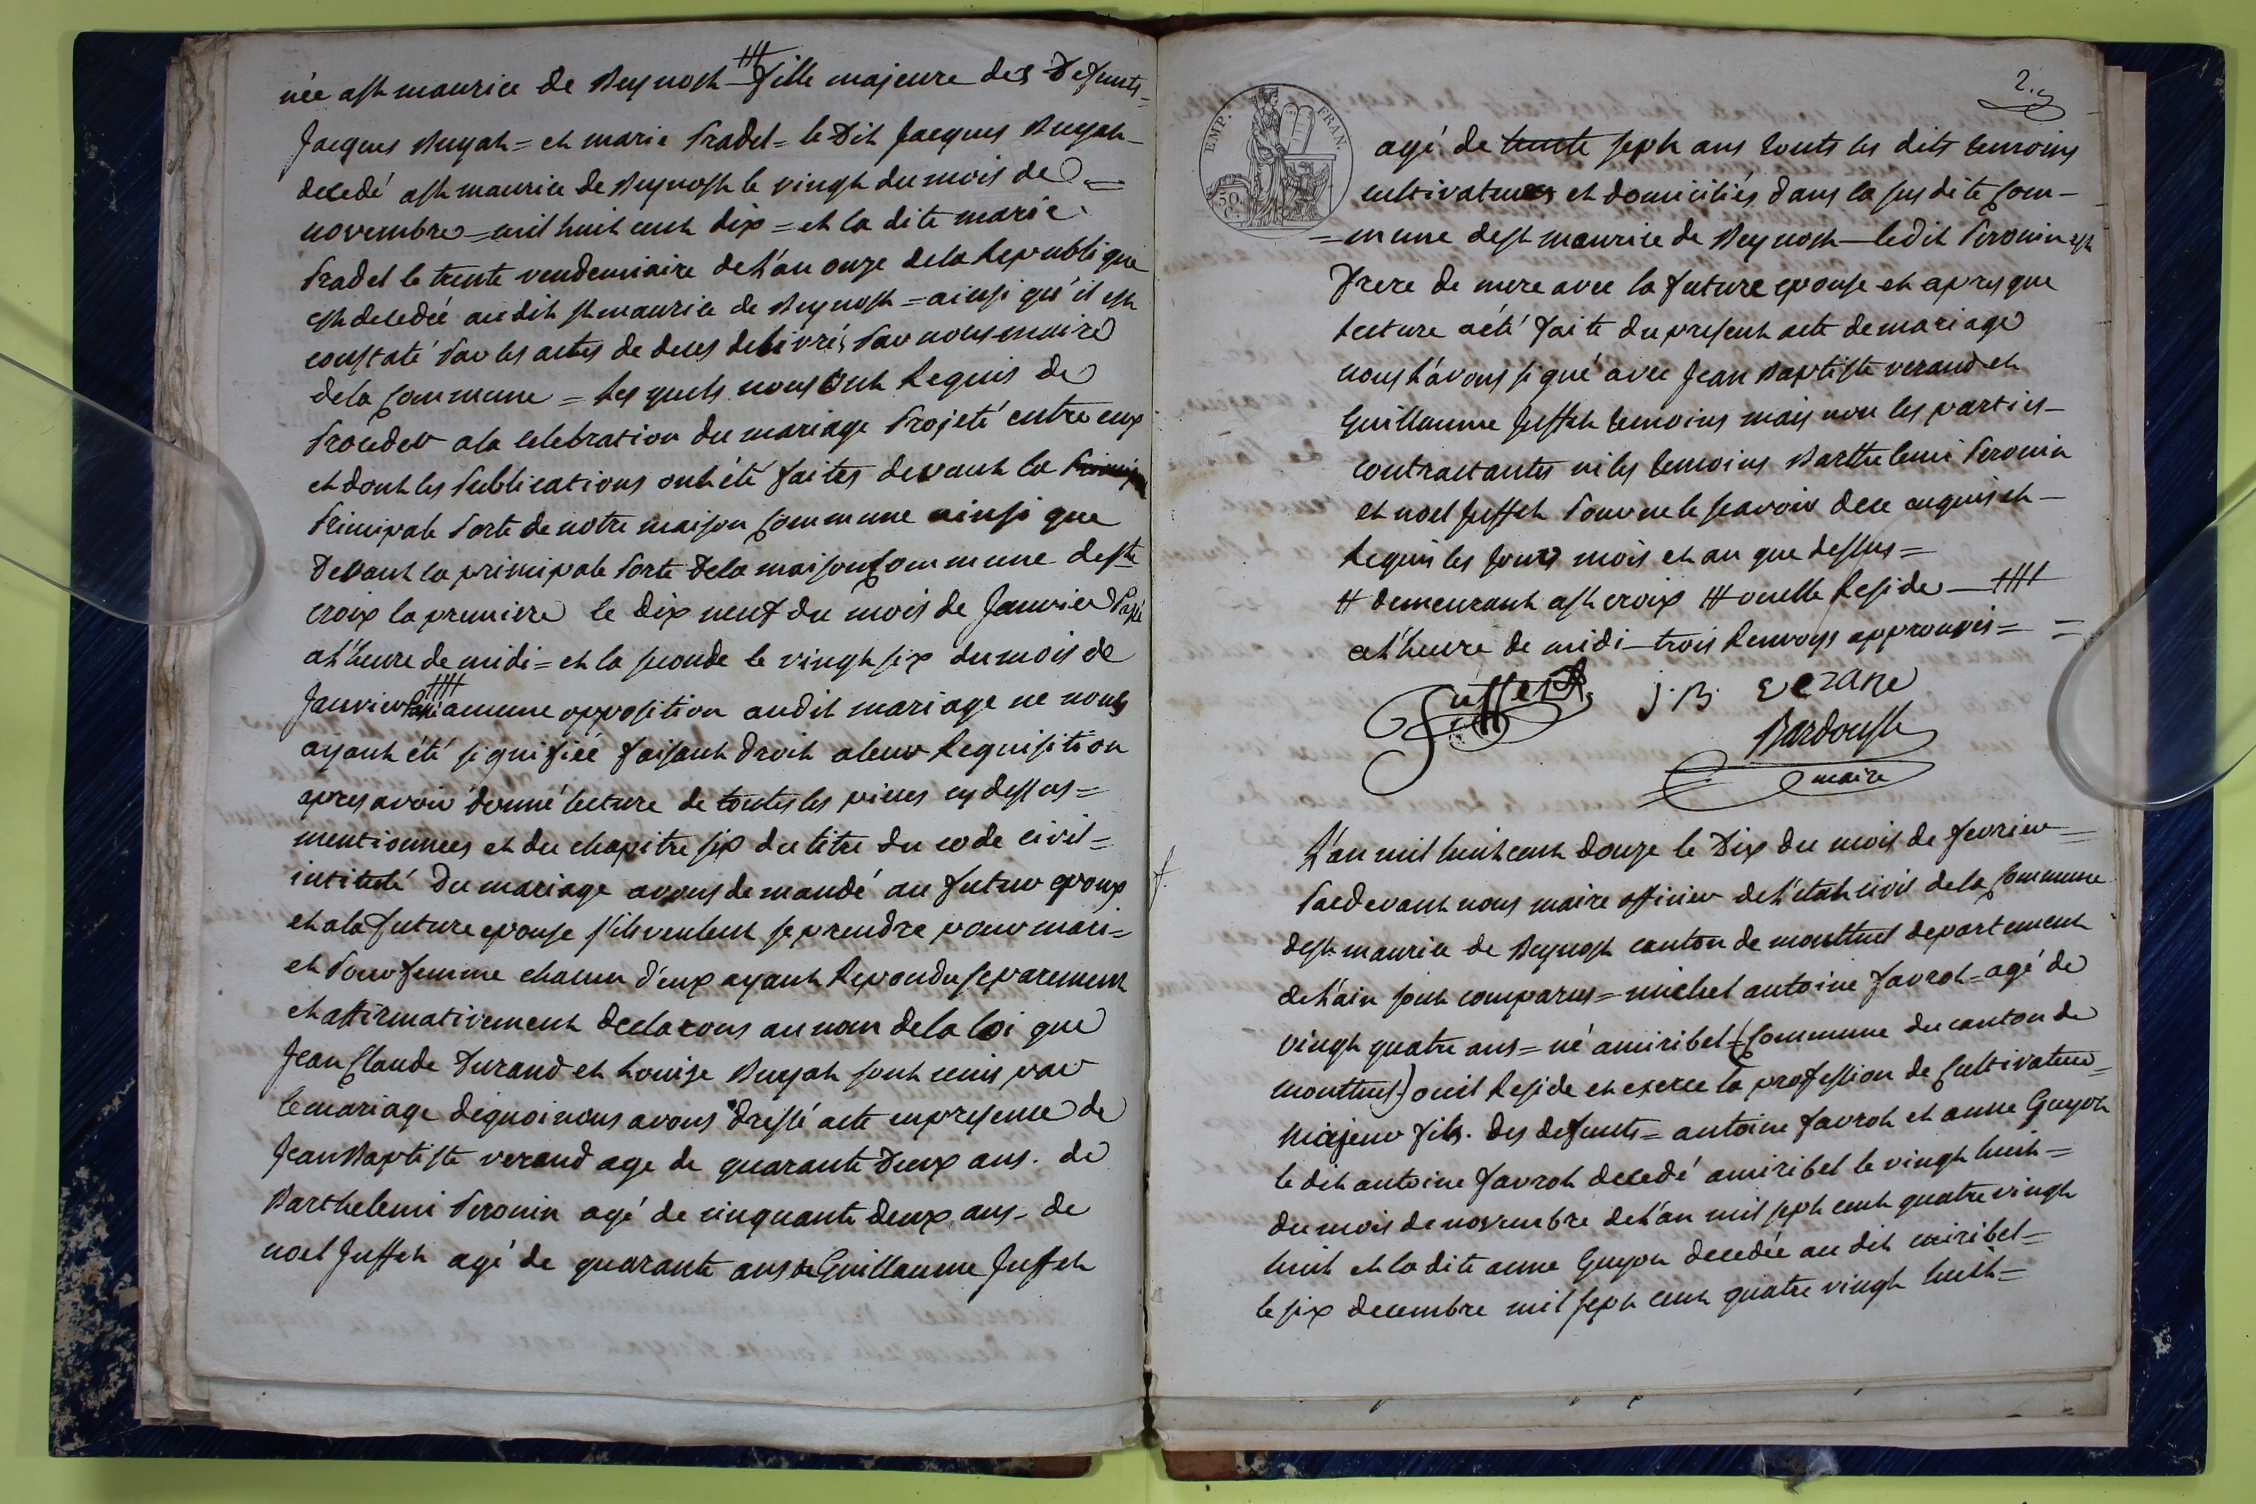 née a st maurice de Beynost ⧺ fille majeure des Defunts=
Jacques Bugah = et marie Pradel = le Dit Jacques Bugah-
decedé a st maurice de Beynost le vingt du mois de =
novembre = mil huit cent dix = et la dite marie
Pradel le trente vendemiaire de l'an onze de la Republique
est decedée au dit st maurice de Beynost = ainsi qu'il est
constaté Par les actes de deces delivrés Par nous maire
de la Commune = Les quels nous ont Requis de
Proceder a la celebration du mariage Projeté entre eux
et dont les Publications ont été faites devant la
Principale Porte de notre maison Commune ainsi que
Devant la principale Porte De la maison Commune de ste
croix la premiere le dix neuf du mois de Janvier Passé
a l'heure de midi = et la seconde le vingt six du mois de
Janvier Passé ⧻ aucune opposition au dit mariage ne nous
ayant été signifiée faisant droit a leur Requisition
apres avoir donné lecture de toutes les pieces cy dessus =
mentionnees et du chapitre six du titre du code civil =
intitulé Du mariage avons demandé au futur epoux
et a la future epouse s'ils veulent se prendre pour mari =
et Pour femme chacun d'eux ayant Repondu separement
et affirmativement declarons au nom de la loi que
Jean Claude Durand et Louise Bugah sont unis par
le mariage de quoi nous avons dressé acte en presence de
Jean Baptiste verand age de quarante Deux ans. de
Barthelemi Peronin agé de cinquante deux ans - de
noel Juffet agé de quarante ans de Guillaume Juffet
2.
EMP. FRAN.
50 C.
agé de trente sept ans touts les dits temoins
cultivateurs et domiciliés dans la sus dite Com-
=mune de st maurice de Beynost — le dit Peronin est
frere de mere avec la future epouse et apres que
Lecture a été faite du present acte de mariage
nous l'avons signé avec Jean Baptiste verand et
Guillaume Juffet temoins mais non les parties -
contractantes ni les temoins Barthelemi Peronin
et noel Juffet Pour ne le scavoir de ce enquis et -
Requis les Jours mois et an que dessus =
⧺ demeurant a st croix ⧻ ou elle Reside — ⧻
a l'heure de midi — trois Renvoys approuvés = =
Juffet J. B. verane
Bardoush
maire
L'an mil huit cent douze le Dix du mois de fevrier =
Pardevant nous maire officier de l'etat civil de la Commune
de st maurice de Beynost canton de montluel departement
de l'ain sont comparus = michel antoine favrot = agé de
vingt quatre ans = né a miribel = (Commune du canton de
montluel) ou il Reside et exerce la profession de Cultivateur =
Majeur fils. Des defunts = antoine favrot et anne Guyon
le dit antoine favrot decedé a miribel le vingt huit =
du mois de novembre de l'an mil sept cent quatre vingt
huit et la dite anne Guyon decedée au dit miribel =
le six decembre mil sept cent quatre vingt huit =